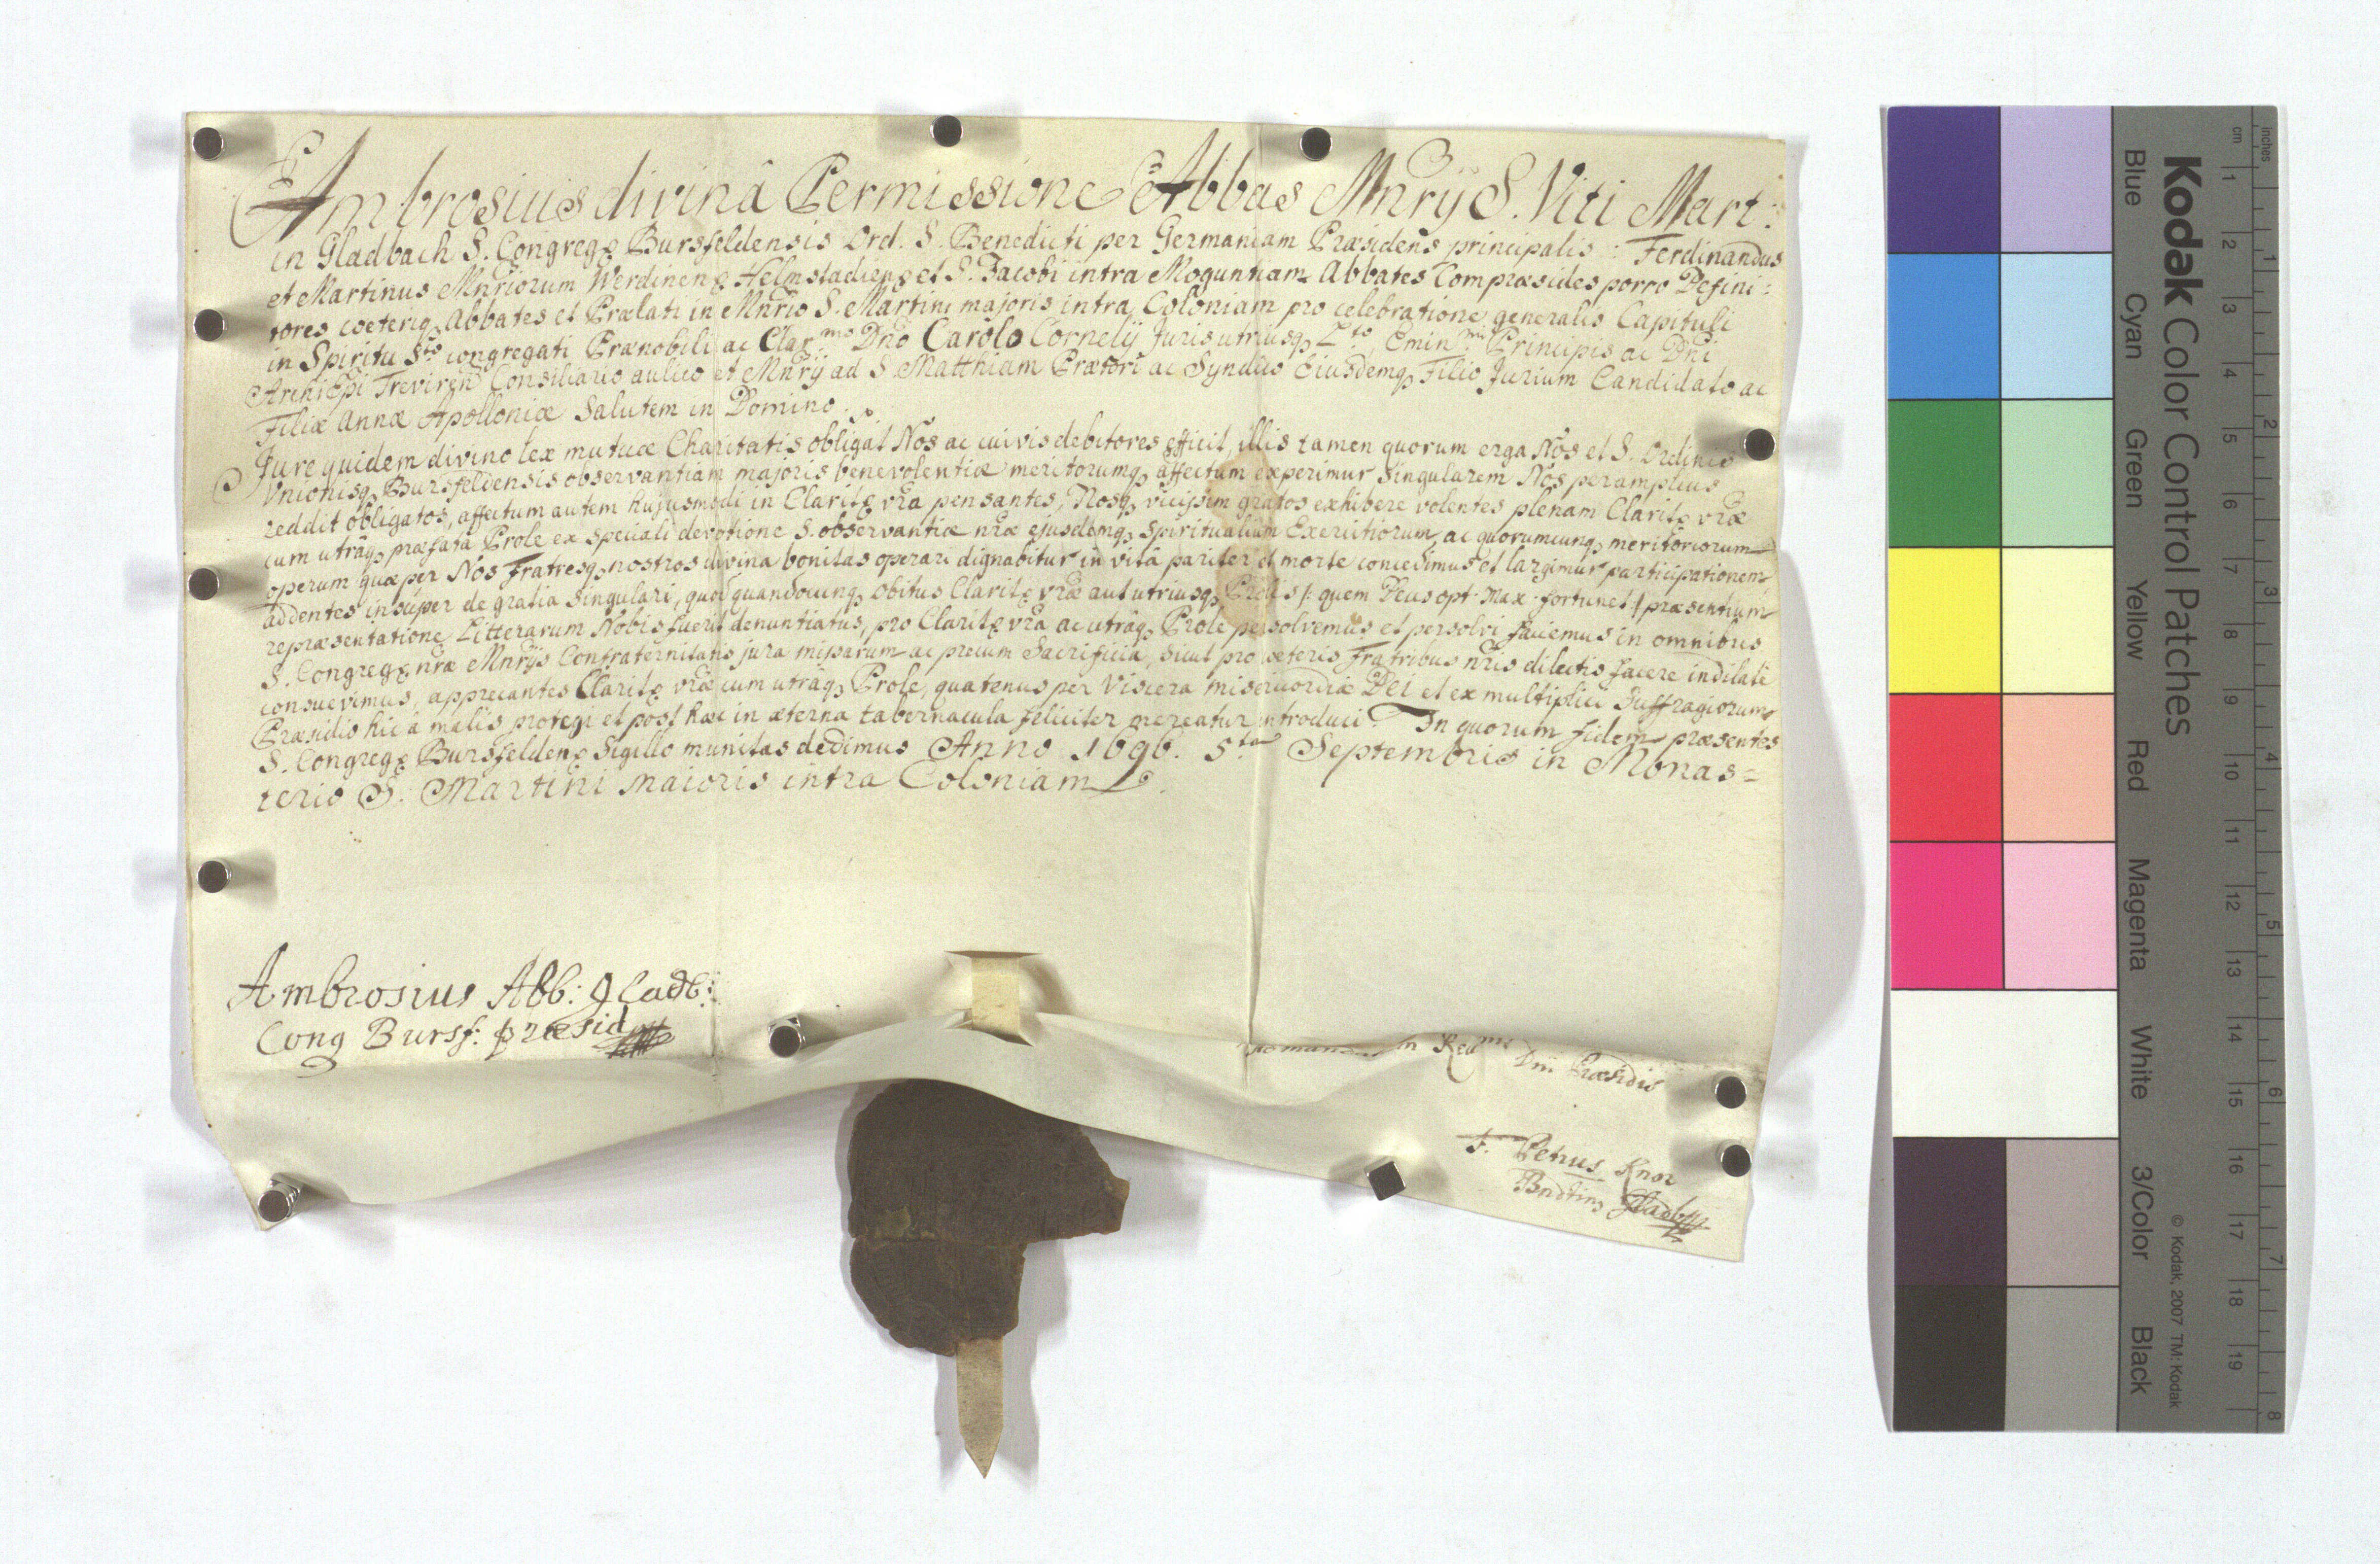 Ambrosius divinâ Permissione Abbas Mnrÿ S. Viti Mart:
in Gladbach S. Congregõ Bursfeldensis Ord. S. Benedicti per Germaniam Præsidens principalis: Ferdinandus
et Martinus Mnriorum Werdinenõ Helmstadienõ et S. Jacobi intra Moguntiam Abbates Compræsides porro Defini:
tores cæteriq, Abbates et Prælati in Mnrio S. Martini majoris intra Coloniam pro celebratione generalis Capituli
in Spiritu Sto congregati Prænobili ac Clar.mo Dno Carolo Cornelÿ Juris utriusq, Lto, Emin.mi Principis ac Dni
ArchiEpi Treviren Consiliario aulico et Mnrÿ ad S Matthiam Prætori ac Syndico Eiusdemq, Filio Jurium Candidato ac
Filiæ Annæ Apolloniæ Salutem in Domino.
Jure quidem divino lex mutuæ Charitatis obligat Nos ac cuivis debitores efficit, illis tamen quorum erga Nos et S. Ordinis
Unionisq, Bursfeldensis observantiam majoris benevolentiæ meritorumq, affectum experimur singularem Nos peramplius
reddit obligatos, affectum autem hujusmodi in Claritõ vra pensantes, Nosq, vicissim gratos exhibere volentes plenam Claritõ vræ
cum utrâq, præfata Prole ex speciali devotione S. observantiæ nræ ejusdemq, Spiritualium Exercitiorum, ac quorumcunq, meritoriorum
operum quæ per Nos Fratresq, nostros divina bonitas operari dignabitur in vitâ pariter et morte concedimus et largimur participationem
addentes insuper de gratia singulari, quod quandocunq, obitus Claritõ vræ aut utriusq, Prolis /: quem Deus opt: Max: fortunet :/ præsentium
repræsentatione Litterarum Nobis fuerit denuntiatus, pro Claritõ vra ac utrâq, Prole persolvemus et persolvi faciemus in omnibus
S. Congregõ nræ Mnrÿs Confraternitatis jura missarum ac precum Sacrificia, sicut pro cæteris Fratribus nris dilectis facere indilatè
consuevimus, apprecantes Claritõ vræ cum utrâq, Prole, quatenus per Viscera misericordiæ Dei et ex multiplici Suffragiorum
Præsidis hic à malis protegi et post hæc in æterna tabernacula feliciter mereatur introduci. In quorum fidem præsentes
S. Congregõ Bursfeldenõ Sigillo munitas dedimus Anno 1696. 5.ta Septembris in Monas=
terio S. Martini maioris intra Coloniam
Ambrosius Abb: Gladb:
Cong Bursf: præsid
Revmi Dni Præsidis
F. Petrus Knor
Bndtins Gladb
Kodak Color Control Patches
Blue Cyan Green Yellow Red Magenta White 3/Color Black
© Kodak, 2007 TM: Kodak
inches 1 2 3 4 5 6 7 8
cm 1 2 3 4 5 6 7 8 9 10 11 12 13 14 15 16 17 18 19